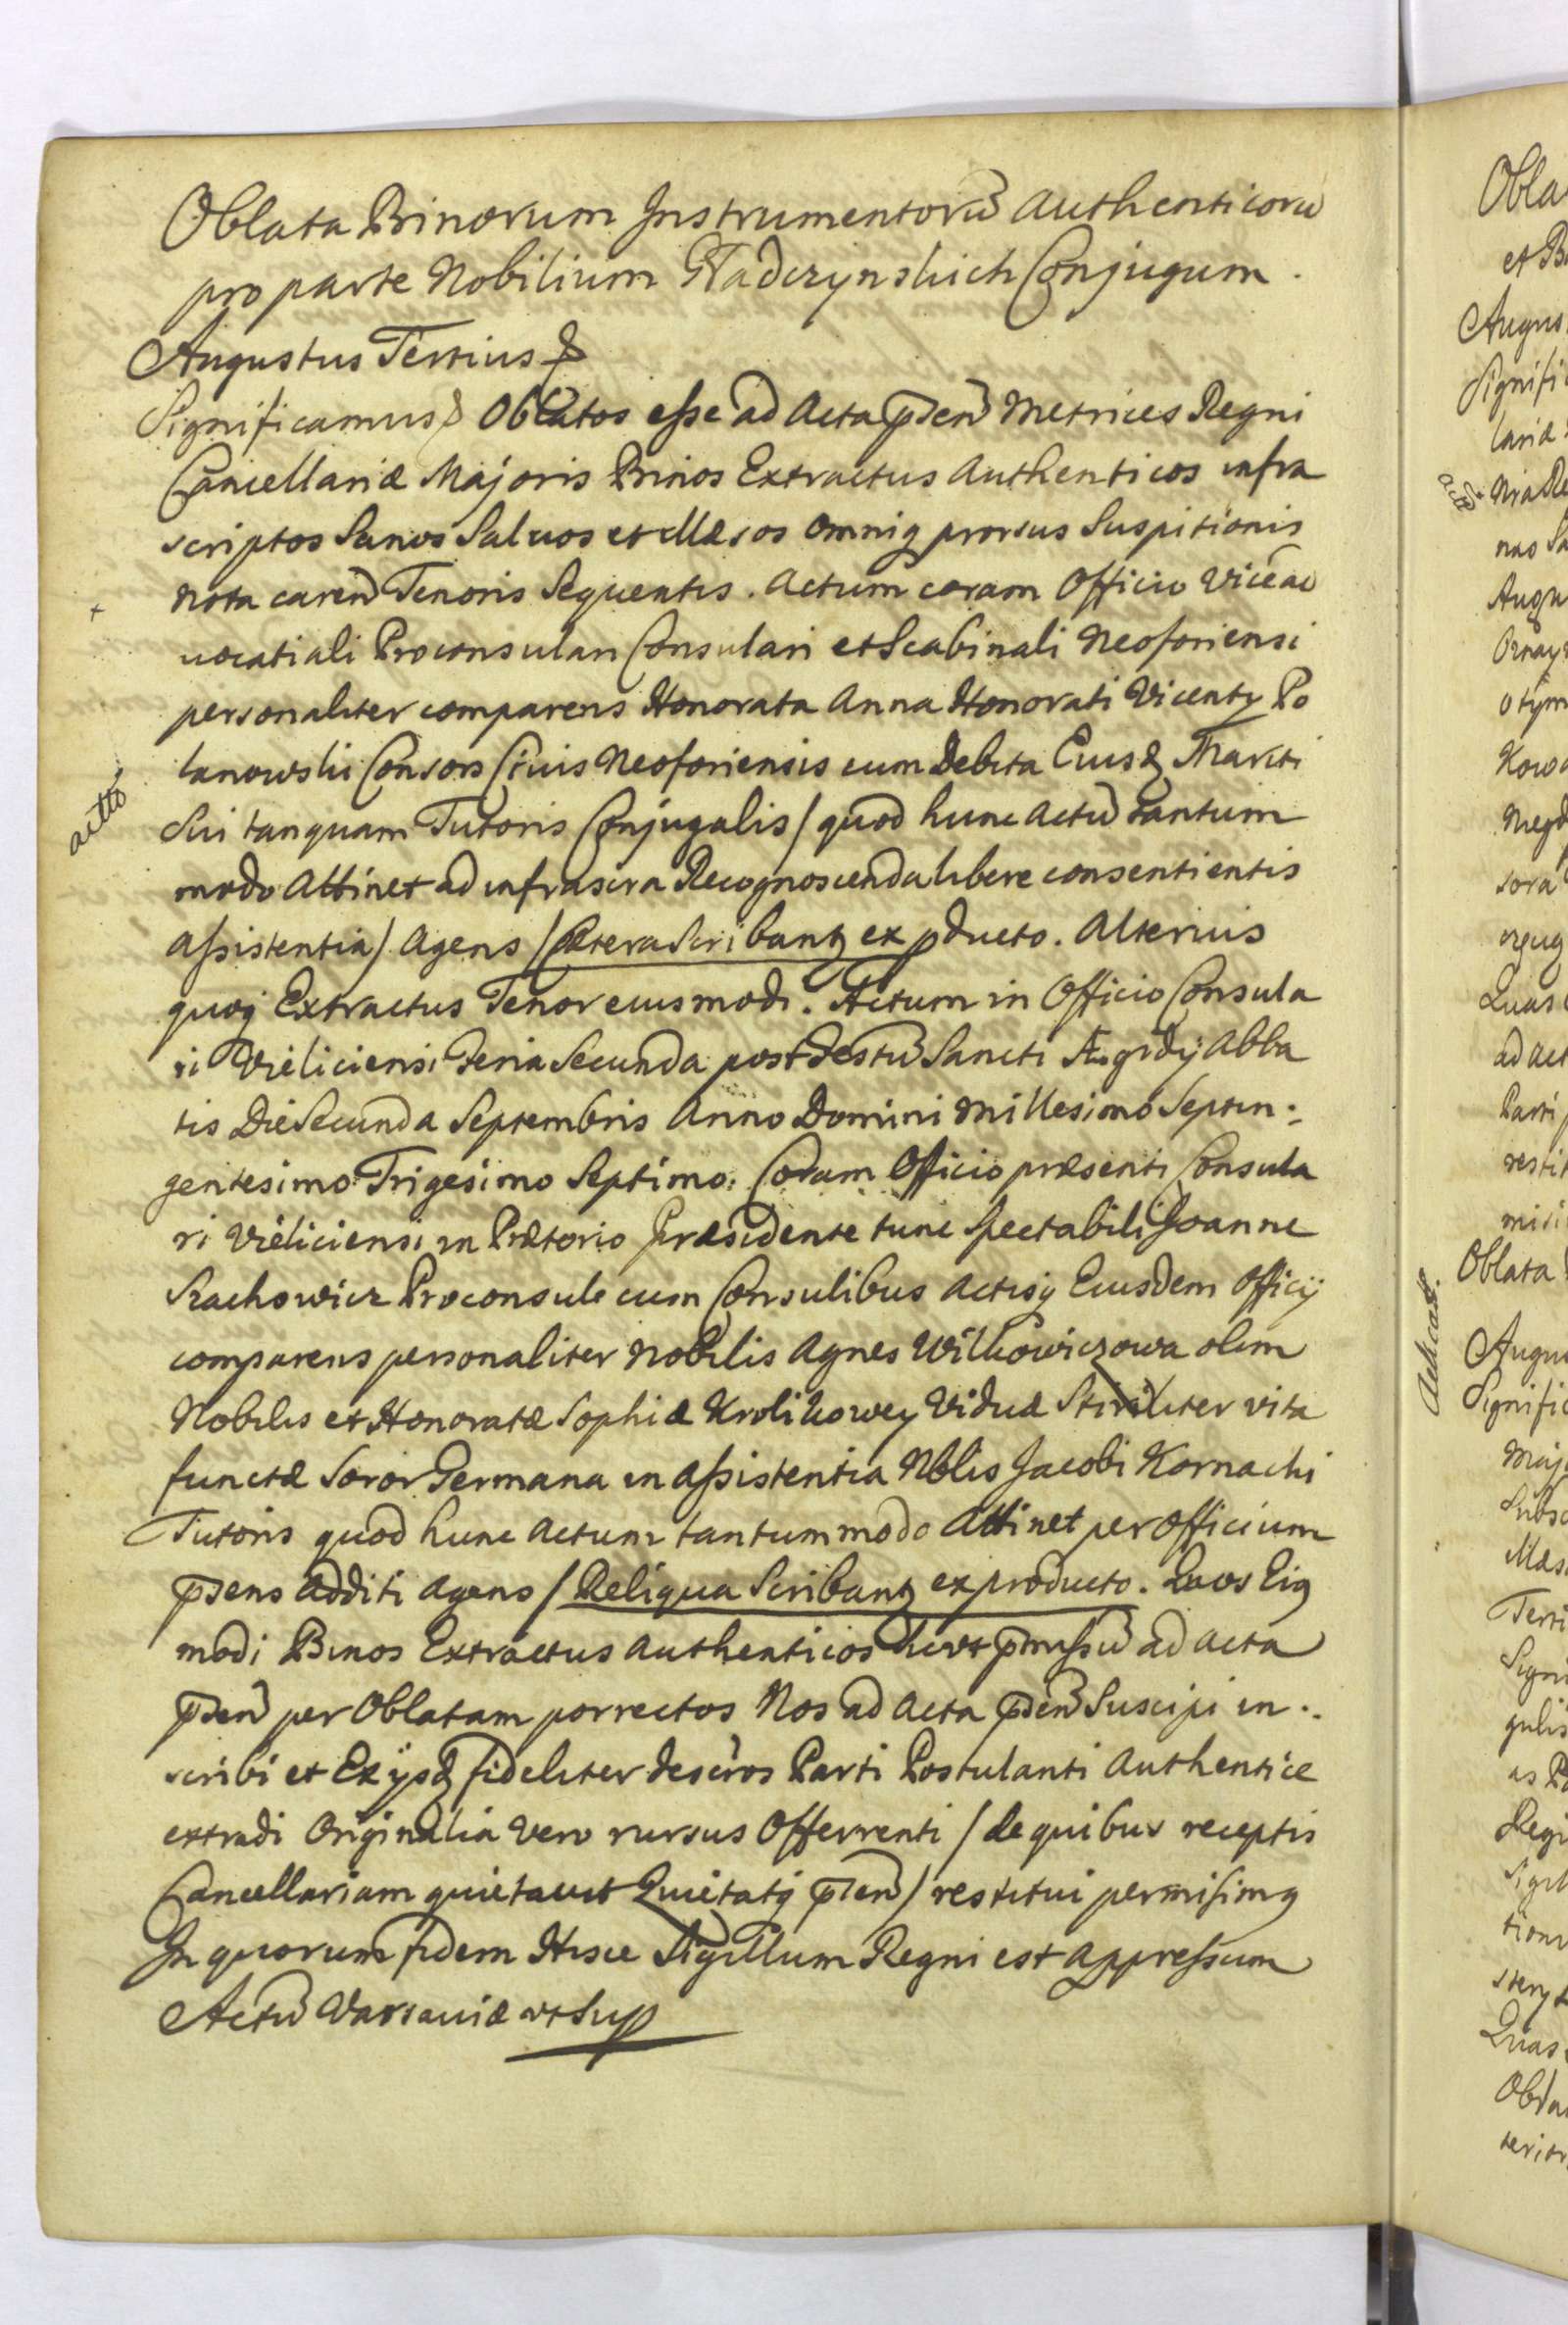 Oblata Binorum Instrumentorũ Authenticorũ
pro parte Nobilium Conjugum.
Augustus Tertius &
Significamus & Oblatos esse ad Acta pñsen Metrices Regni
Cancellariæ Majoris Binos Extractus Authenticos infra
scriptos Sanos Saluos et illæsos omniq prorsus Suspitionis
nota caren Tenoris Sequentis. Actum coram Officio Vicead
uocatiali Proconsulari Consulari et Scabinali Neoforiensi
personaliter comparens Honorata Anna Honorati Vicenty Po
lanowski Consors Ciuis Neoforiensis cum Debita Eiusd Mariti
Sui tanquam Tutoris Conjugalis / quod hunc Actũ tantum
modo Attinet ad infrascra Recognoscenda libere consentientis
Assistentia / Agens / Cætera Scribantz ex pducto. Alterius
quoq Extractus Tenor eiusmodi. Actum in Officio Consula
ri Vieliciensi Feria Secunda post Festũ Sancti Ægidij Abba
tis Die Secunda Septembris Anno Domini Millesimo Septin:
gentesimo Trigesimo Septimo: Coram Officio præsenti Consula
ri Vieliciensi in Prætorio Præsidente tunc Spectabili Joanne
Stachowicz Proconsule cum Consulibus Actisq Eiusdem Officij
comparens personaliter Nobilis Agnes Wilkowiczowa olim
Nobilis et Honoratæ Sophiæ Krolikowey Viduæ Steriliter vita
functæ Soror Germana in Assistentia Nblis Jacobi Kornachi
Tutoris quod hunc Actum tantummodo Attinet per Officium
pñsens Additi Agens / Reliqua Scribantz ex producto. Quos Eiq
modi Binos Extractus Authenticos pmissũ ad Acta
pñsen per Oblatam porrectos Nos ad Acta pñsen Suscipi in:
scribi et Ex ijsd fideliter descros Parti Postulanti Authentice
extradi Originalia Vero rursus Offerrenti / de quibus receptis
Cancellariam quietauit Quietatq pñsen / restitui permisimq
In quorum fidem Hisce Sigillum Regni est appressum
Actũ Varsauiæ ut Sup
actto
+
Obla
et B
Augus
Signifi
lariæ
actto
nas Sa
Augu
otym
Kowa
sora
Quas
ad act
Parti
restit
Oblata
Augus
Signific
Maj
Subsc
Terti
gulis
as
Regn
Sigil
tion
Quas